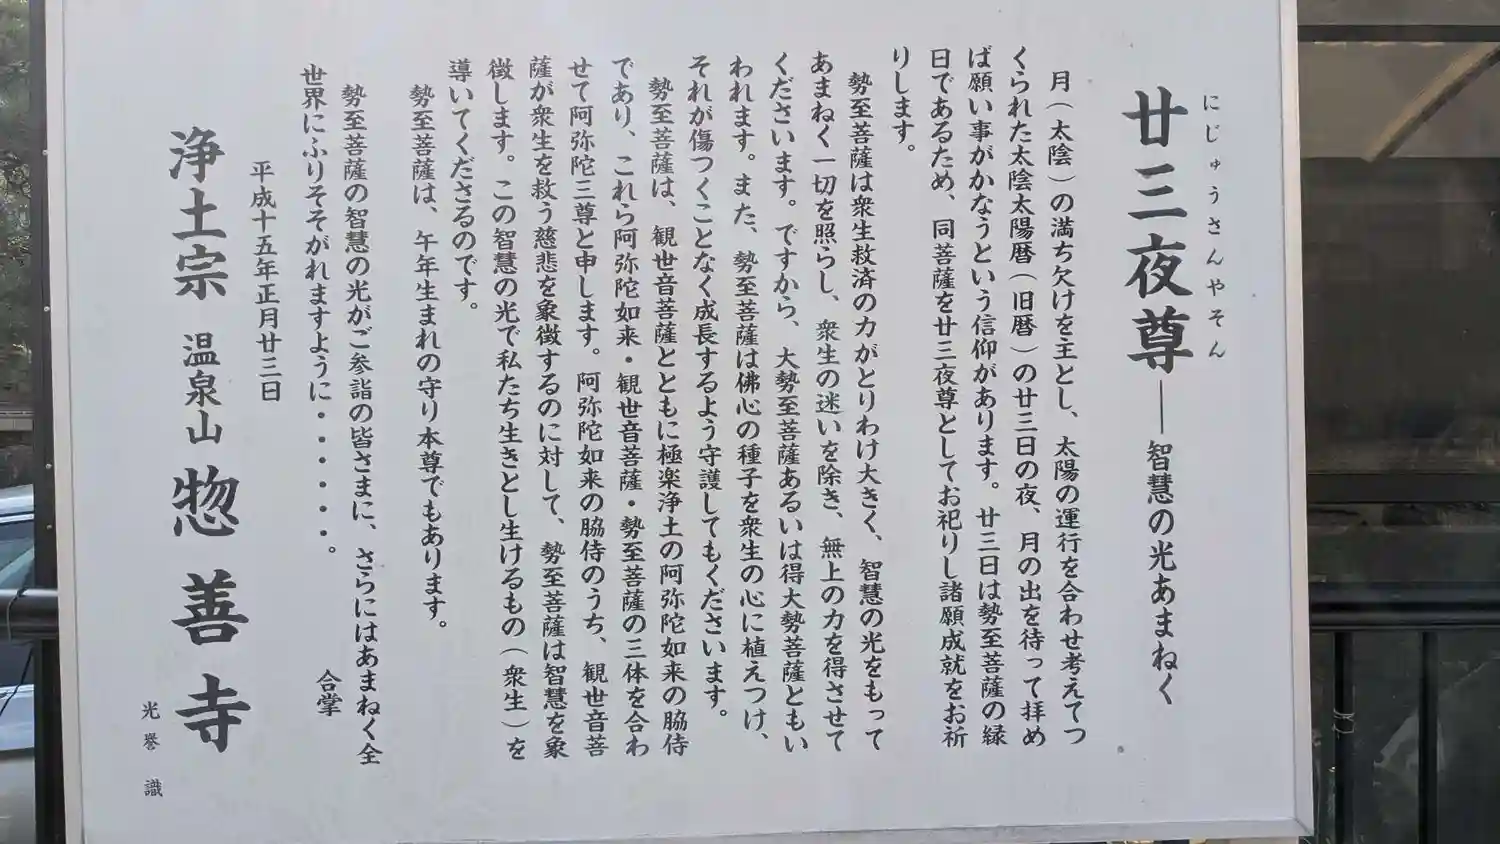 にじゅうさんやそん
廿三夜尊――智慧の光あまねく
月(太陰)の満ち欠けを主とし、太陽の運行を合わせ考えてつ
くられた太陰太陽暦(旧暦)の廿三日の夜、月の出を待って拝め
ば願い事がかなうという信仰があります。廿三日は勢至菩薩の縁
日であるため、同菩薩を廿三夜尊としてお祀りし諸願成就をお祈
りします。
勢至菩薩は衆生救済の力がとりわけ大きく、智慧の光をもって
あまねく一切を照らし、衆生の迷いを除き、無上の力を得させて
くださいます。ですから、大勢至菩薩あるいは得大勢菩薩ともい
われます。また、勢至菩薩は佛心の種子を衆生の心に植えつけ、
それが傷つくことなく成長するよう守護してもくださいます。
勢至菩薩は、観世音菩薩とともに極楽浄土の阿弥陀如来の脇侍
であり、これら阿弥陀如来・観世音菩薩・勢至菩薩の三体を合わ
せて阿弥陀三尊と申します。阿弥陀如来の脇侍のうち、観世音菩
薩が衆生を救う慈悲を象徴するのに対して、勢至菩薩は智慧を象
徴します。この智慧の光で私たち生きとし生けるもの(衆生)を
導いてくださるのです。
勢至菩薩は、午年生まれの守り本尊でもあります。
勢至菩薩の智慧の光がご参詣の皆さまに、さらにはあまねく全
世界にふりそそがれますように・・・・・・。
合掌
平成十五年正月廿三日
浄土宗 温泉山 惣善寺
光誉 識